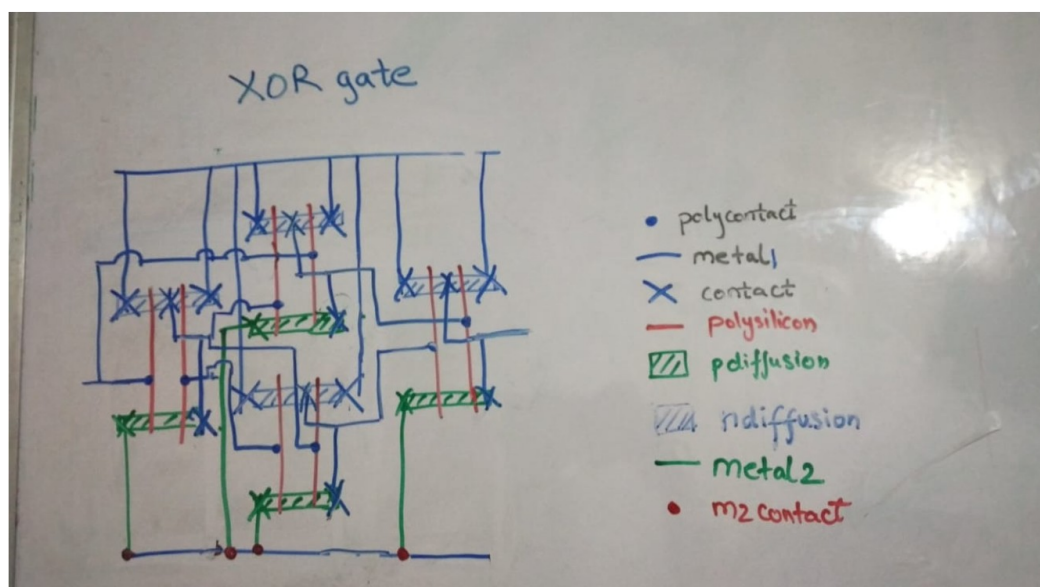 XOR gate
polycontact
metal1
contact
polysilicon
pdiffusion
ndiffusion
metal2
m2 contact